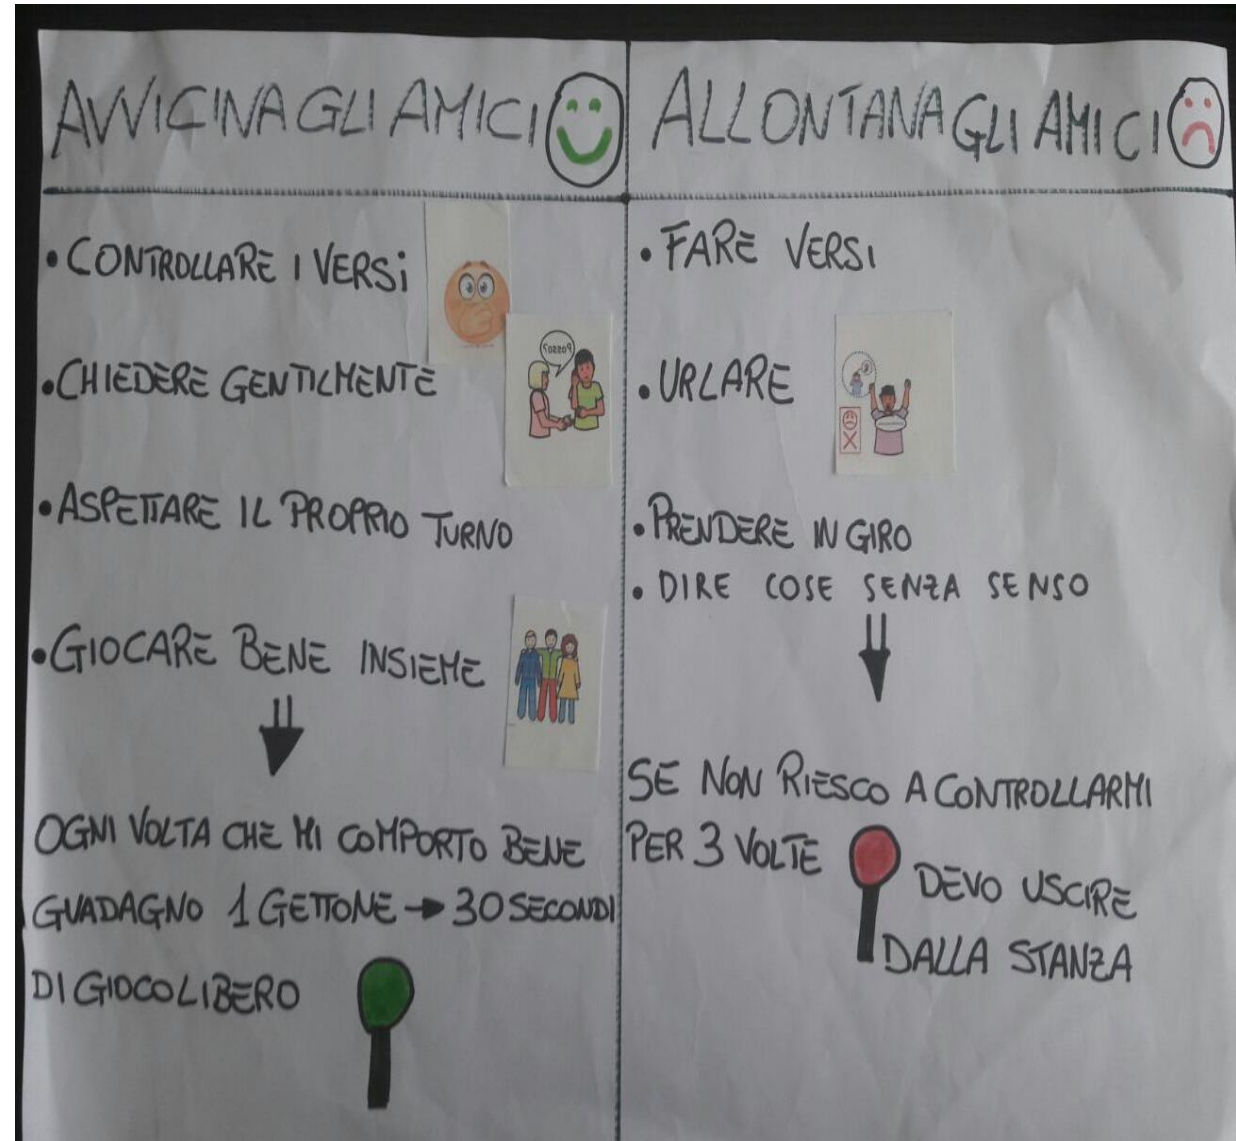 AVVICINA GLI AMICI
• CONTROLLARE I VERSI
• CHIEDERE GENTILMENTE
POSSO?
• ASPETTARE IL PROPRIO TURNO
• GIOCARE BENE INSIEME
OGNI VOLTA CHE MI COMPORTO BENE
GUADAGNO 1 GETTONE → 30 SECONDI
DI GIOCO LIBERO
ALLONTANA GLI AMICI
• FARE VERSI
• URLARE
• PRENDERE IN GIRO
• DIRE COSE SENZA SENSO
SE NON RIESCO A CONTROLLARMI
PER 3 VOLTE
DEVO USCIRE
DALLA STANZA